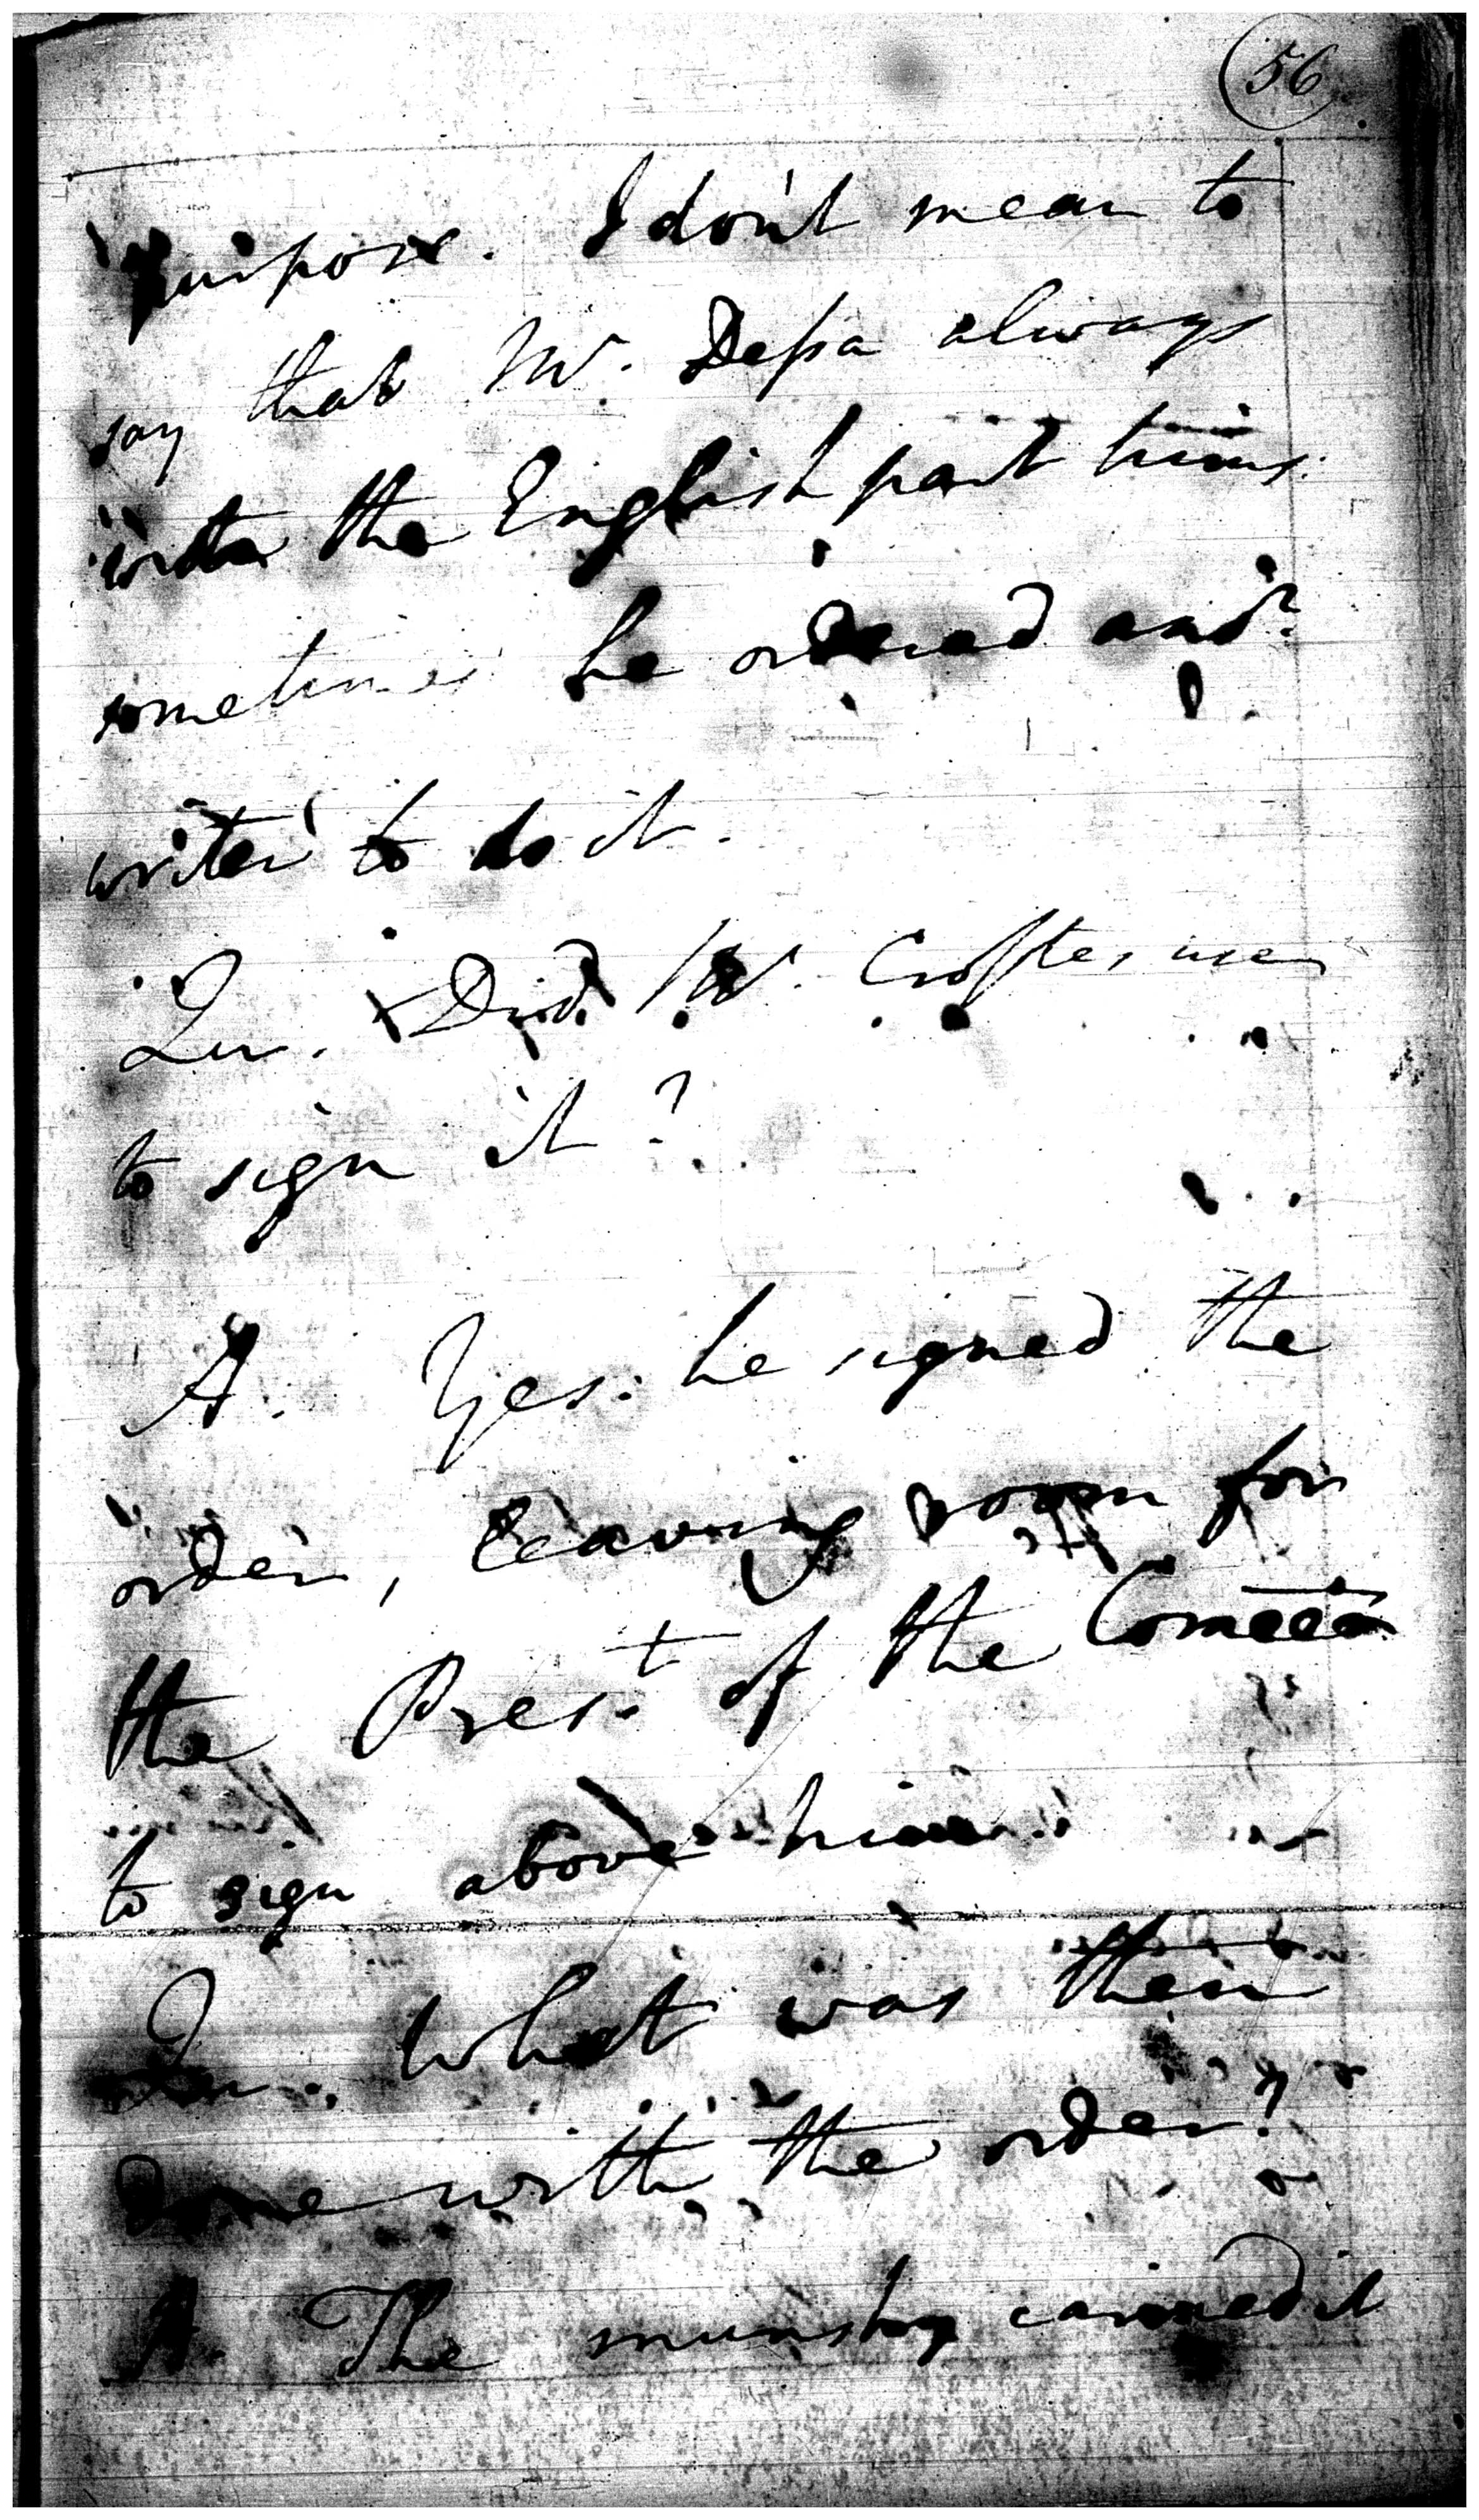 56
purpose. I don't mean to
say that Mr. Dessa always
wrote the English part hims:
sometimes he ordered anor
writer to do it.
Qu. Did Mr. Croftes use
to sign it?
A. Yes: he signed the
order, leaving room for
the Prest of the Comee
to sign above him
Qu. What was then
done with the order?
A. The munshy carried it